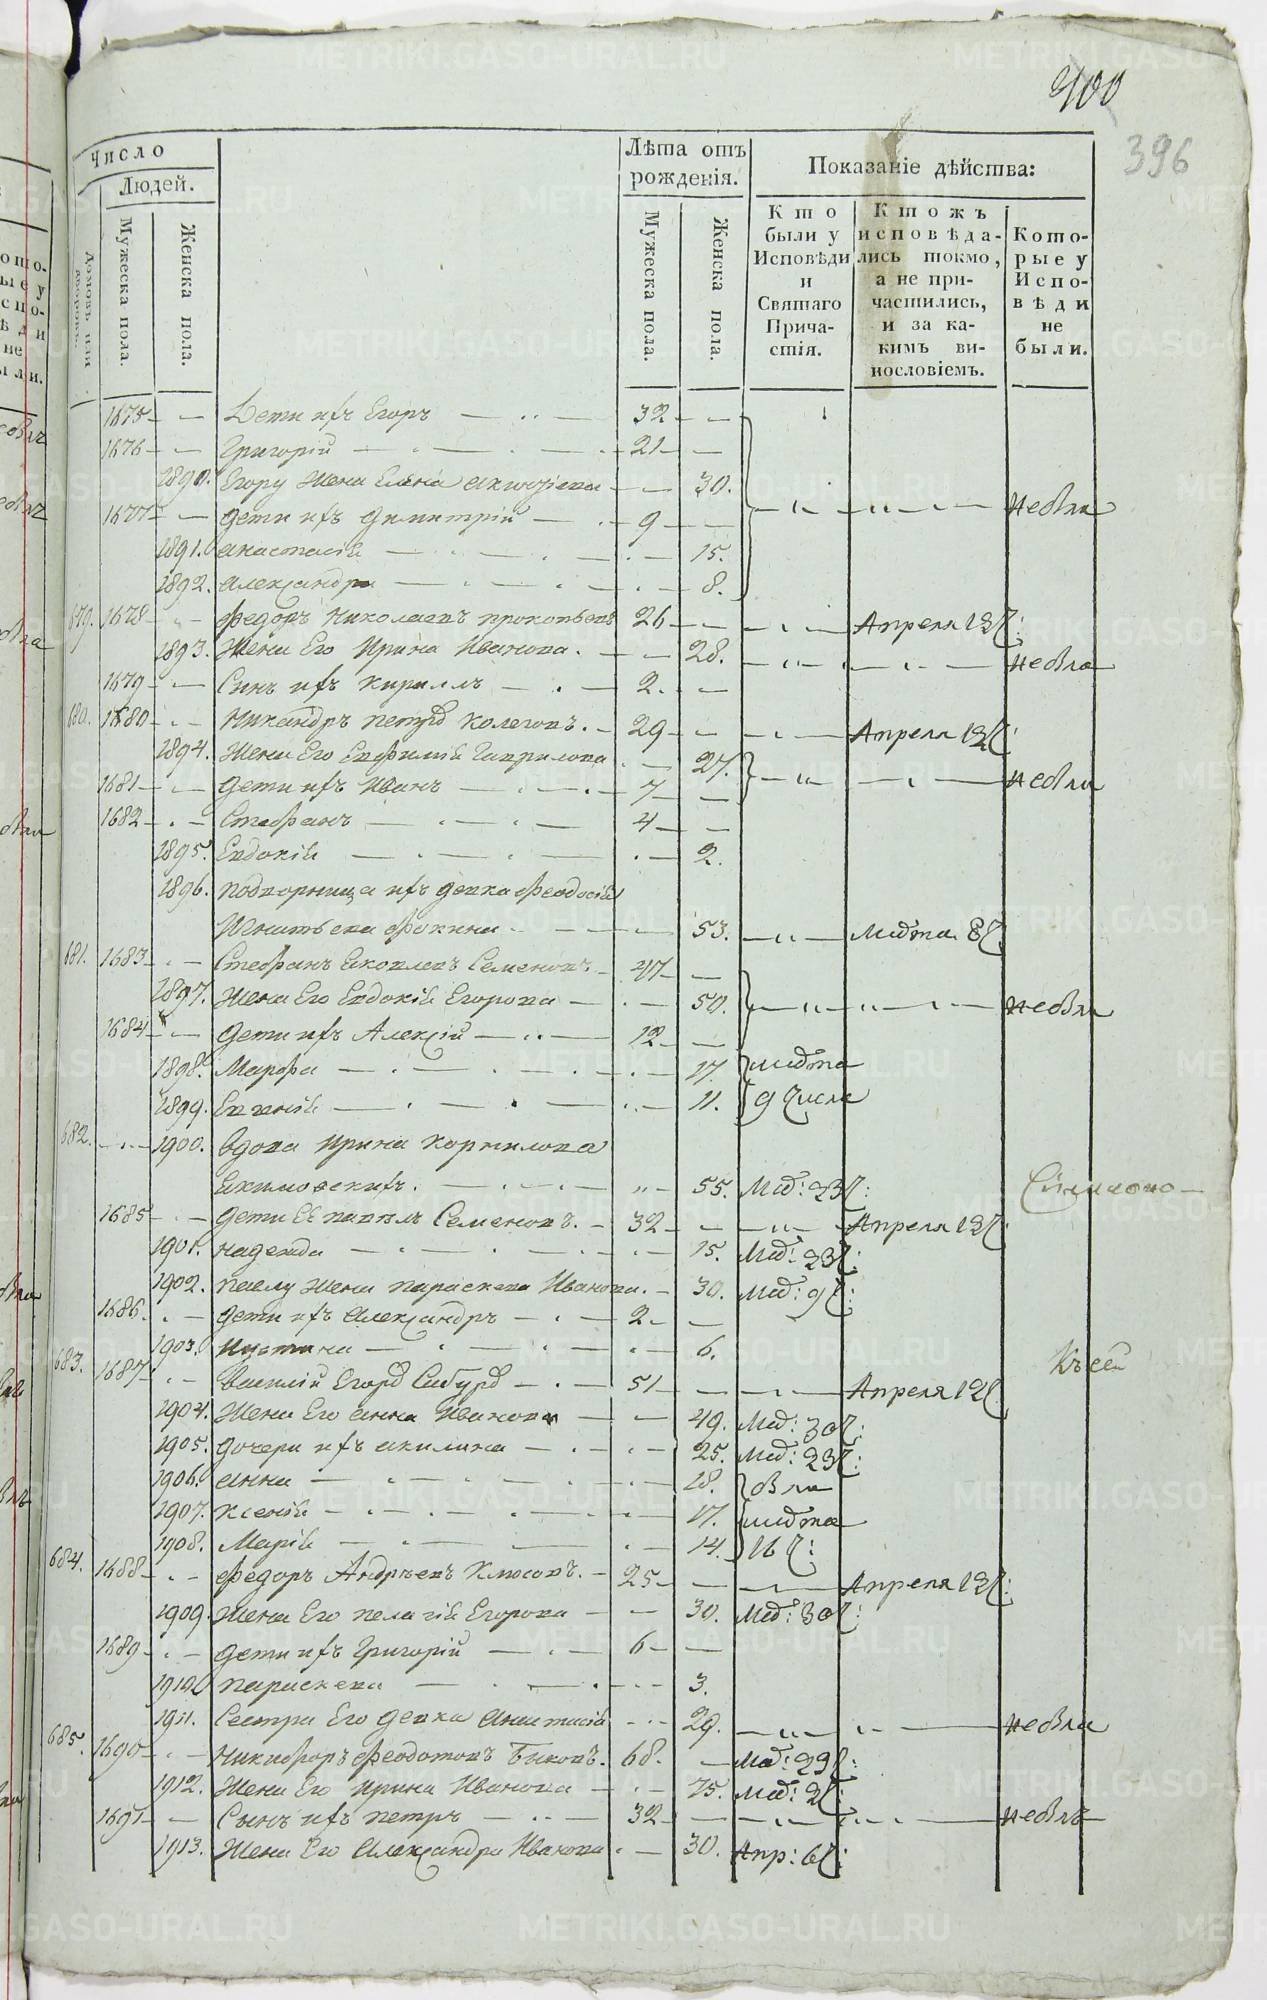 400
396
Число
Людей.
Домовъ или дворовъ.
Мужеска пола.
Женска пола.
Лѣта отъ рожденія.
Мужеска пола.
Женска пола.
Показаніе дѣйства:
Кто были у Исповѣди и Святаго Причастія.
Ктожъ исповѣдались токмо, а не причастились, и за какимъ винословіемъ.
Которые у Исповѣди не были.
1675 — Дети ихъ Егоръ — 32
1676 — Григорій — 21
1890. Егору жена Елена — 30.
1677 — дети ихъ Димитрій — 9 — небыли
1891. анастасія — 15.
1892. александра — 8.
679. 1678 Федоръ Николаевъ прокопьевъ 26 — Апреля 12
1893. Жена Его Ирина Иванова. — 28. — небыла
1679 — Сынъ ихъ Кириллъ — 2.
680. 1680 Никандръ петровъ — 29 — Апреля 12
1894. Жена Его Евфимія Гаврилова — 27.
1681 — дети ихъ Иванъ — 7 — небыли
1682 — Стефанъ — 4
1895. Евдокія — 2.
1896. подворница ихъ девка Феодосія
Игнатьева Фокина — 53. — марта 8
681. 1683 Стефанъ Яковлевъ Семеновъ — 47
1897. Жена Его Евдокія Егорова — 50. — небыли
1684 — дети ихъ Алексій — 12
1898. Марфа — 17. марта
1899. Евгенія — 11. 9 числа
682. 1900. вдова Ирина Корнилова
Екимовскихъ. — 55. Мар: 23
1685 дети Её павелъ Семеновъ. — 32 — Апреля 12
1901. надежда — 15. Мар: 23
1902. павлу жена параскева Иванова. — 30. Мар: 9
1686. дети ихъ Александръ — 2.
1903. Иустина — 6.
683. 1687 Василій Егоровъ — 51 — Апреля 12
1904. Жена Его анна Иванова — 49. Мар: 30
1905. дочери ихъ акилина — 25. Мар: 23
1906. анна — 18. были
1907. Ксенія — 17. марта
1908. Марія — 14. 16
684. 1688 Федоръ Андреевъ Клюсовъ. — 25 — Апреля 12
1909. Жена Его пелагія Егорова — 30. Мар: 30
1689 дети ихъ Григорій — 6
1910. параскева — 3.
1911. Сестра Его девка Анастасія — 29. — небыла
685. 1690 Никифоръ Феодотовъ Быковъ. 68. — Мар: 29
1912. Жена Его Ирина Иванова — 75. Мар: 2
1691 — Сынъ ихъ петръ — 32 — небылъ
1913. Жена Его Александра Иванова — 30. Апр: 6
METRIKI.GASO-URAL.RU